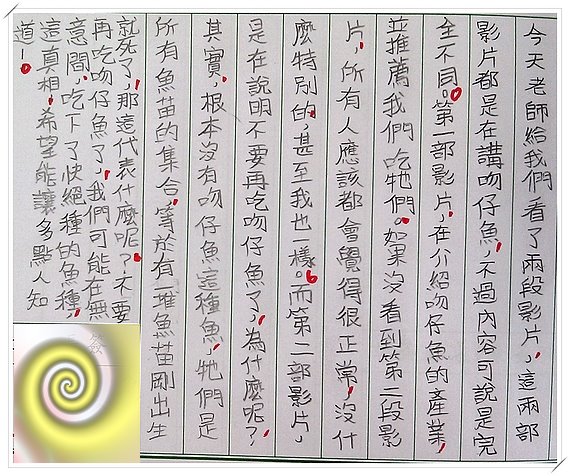 今天老師給我們看了兩段影片，這兩部
影片都是在講吻仔魚，不過內容可說是完
全不同。第一部影片，在介紹吻仔魚的產業，
並推薦我們吃牠們。如果沒看到第二段影
片，所有人應該都會覺得很正常，沒什
麼特別的，甚至我也一樣。而第二部影片，
是在說明不要再吃吻仔魚了，為什麼呢？
其實，根本沒有吻仔魚這種魚，牠們是
所有魚苗的集合，等於有一堆魚苗剛出生
就死了，那這代表什麼呢？不要
再吃吻仔魚了，我們可能在無
意間，吃下了快絕種的魚種，
這真相，希望能讓多點人知
道。